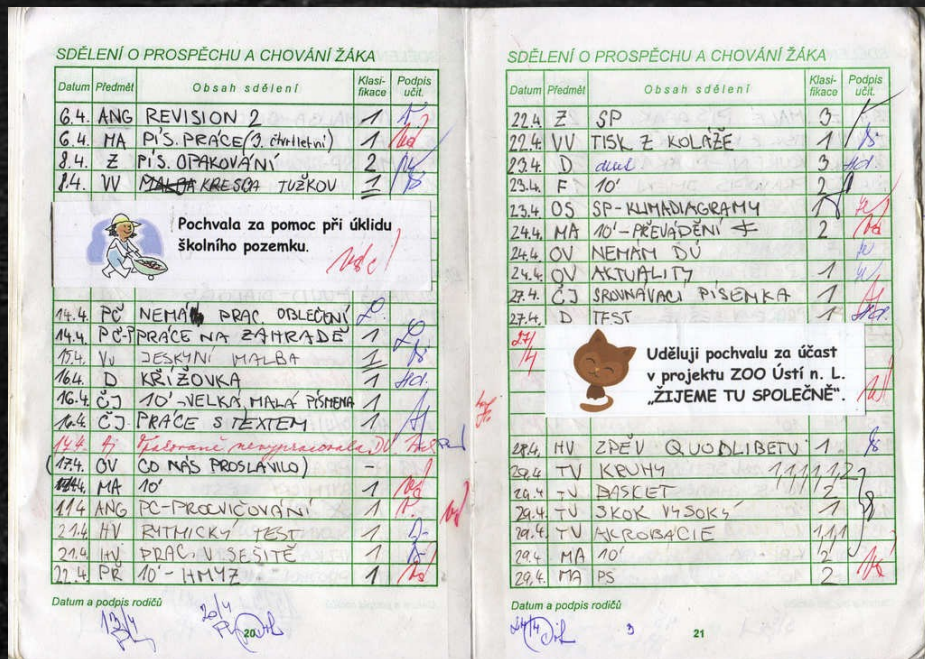 SDĚLENÍ O PROSPĚCHU A CHOVÁNÍ ŽÁKA
Datum Předmět Obsah sdělení Klasi-fikace Podpis učit.
6.4. ANG REVISION 2 1
6.4. MA PÍS. PRÁCE (3. čtvrtletní) 1
8.4. Z PÍS. OPAKOVÁNÍ 2
8.4. VV KRESBA TUŽKOU 1
Pochvala za pomoc při úklidu
školního pozemku.
14.4. PČ NEMÁ PRAC. OBLEČENÍ
14.4. PČ-P PRÁCE NA ZAHRADĚ 1
15.4. VV JESKYNÍ MALBA 1
16.4. D KŘÍŽOVKA 1
16.4. ČJ 10' - VELKÁ, MALÁ PÍSMENA 1
16.4. ČJ PRÁCE S TEXTEM 1
17.4. Aj nevypracovala DÚ
(17.4. OV CO NÁS PROSLAVILO) -
MA 10' 1
ANG PC-PROCVIČOVÁNÍ 1
21.4. HV RYTMICKÝ TEST 1
21.4. HV PRAC. V SEŠITĚ 1
22.4. PŘ 10' - HMYZ 1
Datum a podpis rodičů
13/4 20/4
20
SDĚLENÍ O PROSPĚCHU A CHOVÁNÍ ŽÁKA
Datum Předmět Obsah sdělení Klasi-fikace Podpis učit.
22.4. Z SP 3
22.4. VV TISK Z KOLÁŽE 1
23.4. D 3
23.4. F 10' 2
23.4. OS SP-KLIMADIAGRAMY 1
24.4. MA 10' - PŘEVÁDĚNÍ 2
24.4. OV NEMÁM DÚ
24.4. OV AKTUALITY 1
27.4. ČJ SROVNÁVACÍ PÍSEMKA 1
27.4. D TEST 1
27/4
Uděluji pochvalu za účast
v projektu ZOO Ústí n. L.
„ŽIJEME TU SPOLEČNĚ“.
28.4. HV ZPĚV QUODLIBETU 1
29.4. TV KRUHY 1,1,1,1,1,2
29.4. TV BASKET 2
29.4. TV SKOK VYSOKÝ 1
29.4. TV AKROBACIE 1,1,1
29.4. MA 10' 2
29.4. MA PS 2
Datum a podpis rodičů
24/4
21